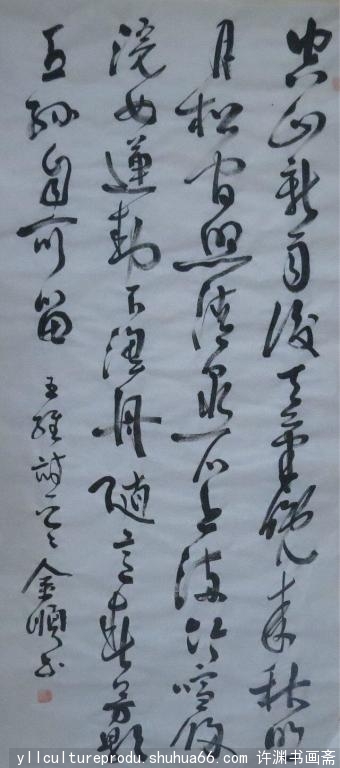 空山新雨後天氣晚來秋明
月松间照清泉石上流竹喧歸
浣女蓮動下漁舟随意春芳歇
王孫自可留
王維詩一首 金順书
yllcultureprodu.shuhua66.com 许渊书画斋